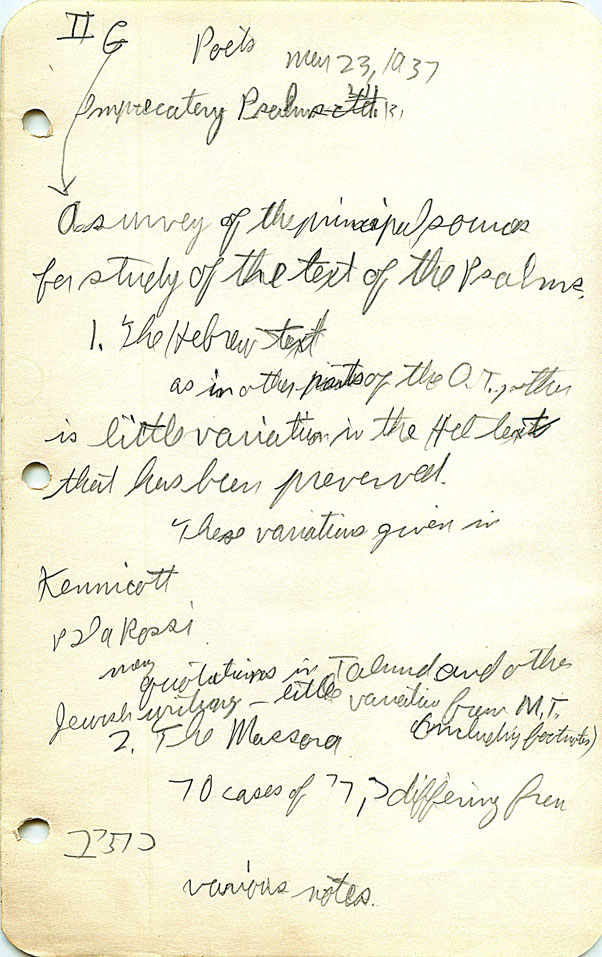 II G Poets Mar 23, 1937
Imprecatory Psalms
A survey of the principal sources
for study of the text of the Psalms.
1. The Hebrew text
as in other parts of the O.T., there
is little variation in the Heb text
that has been preserved.
These variations given in
Kennicott
& Da Rossi
many quotations in Talmud and other
Jewish writing – little variation from M.T.
2. The Massora (including footnotes)
70 cases of differing from
various notes.